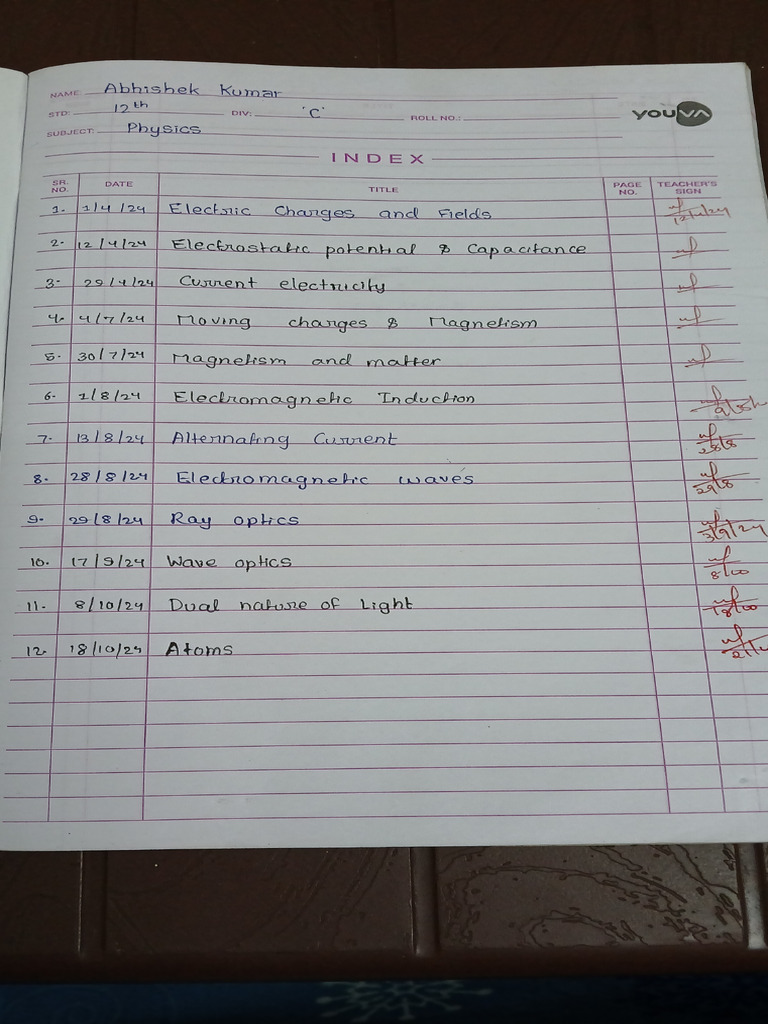 NAME: Abhishek Kumar
STD: 12th DIV: 'C' ROLL NO.:
youva
SUBJECT: Physics
INDEX
SR. NO. DATE TITLE PAGE NO. TEACHER'S SIGN
1. 1/4/24 Electric Charges and Fields
2. 12/4/24 Electrostatic potential & Capacitance
3. 29/4/24 Current electricity
4. 4/7/24 Moving charges & Magnetism
5. 30/7/24 Magnetism and matter
6. 1/8/24 Electromagnetic Induction
7. 13/8/24 Alternating Current 28/8
8. 28/8/24 Electromagnetic waves 29/8
9. 29/8/24 Ray optics 3/9/24
10. 17/9/24 Wave optics
11. 8/10/24 Dual nature of Light
12. 18/10/24 Atoms